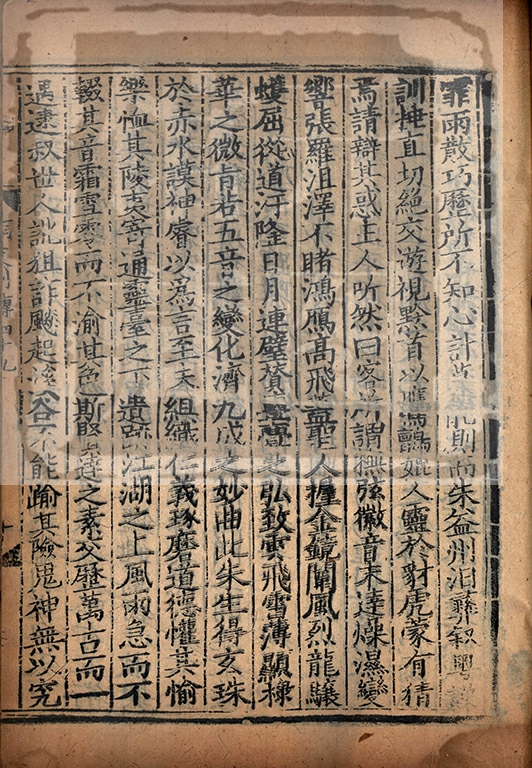 霏雨散巧歷所不知心計莫能則而朱益州汨彝叙粤謨
訓捶直切絕交遊視黔首以鷹鸇媲人靈於豺虎蒙有猜
焉請辯其惑主人听然曰客所謂撫弦徽音未達燥濕變
響張羅沮澤不睹鴻鴈高飛蓋聖人握金鏡闡風烈龍驤
蠖屈從道汙隆日月連璧贊亹亹之弘致雲飛雪薄顯棣
華之微旨若五音之變化濟九成之妙曲此朱生得玄珠
於赤水謨神睿以爲言至夫組織仁義琢磨道德懽其愉
樂恤其陵夷寄通靈臺之下遺跡江湖之上風雨急而不
輟其音霜雪零而不渝其色斯賢達之素交歷萬古而一
遇逮叔世人訛狙詐飈起溪谷不能踰其險鬼神無以究
列傳四十九